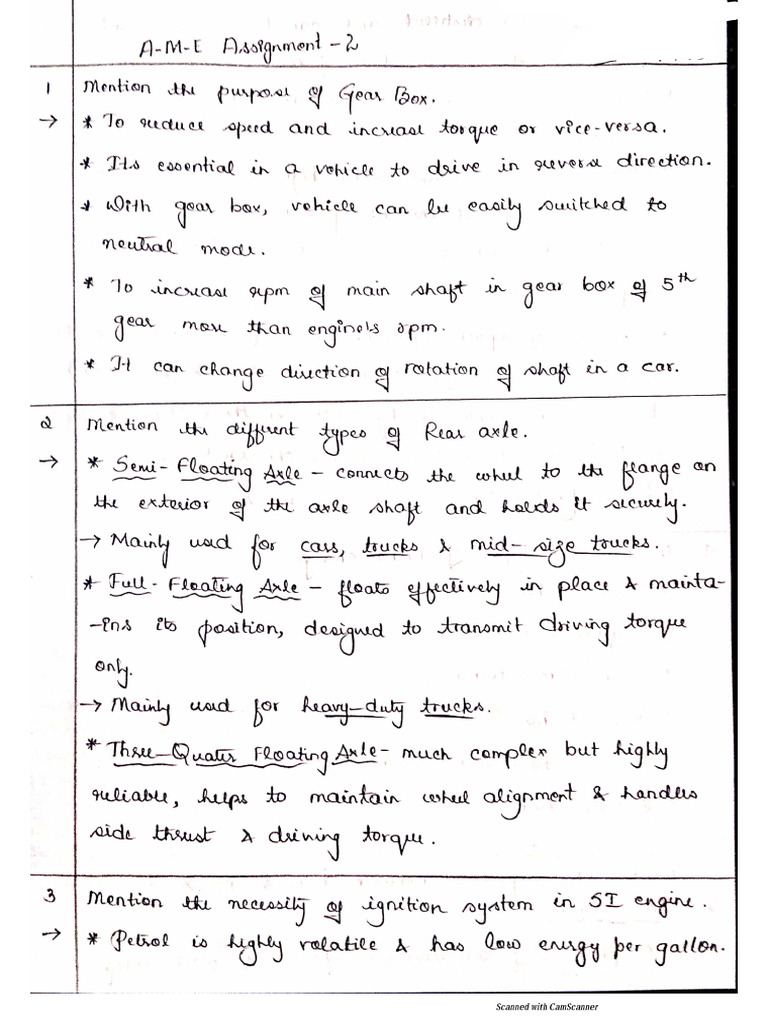 A-M-E Assignment - 2
1 Mention the purpose of Gear Box.
→ * To reduce speed and increase torque or vice-versa.
* Its essential in a vehicle to drive in reverse direction.
* With gear box, vehicle can be easily switched to
neutral mode.
* To increase rpm of main shaft in gear box of 5th
gear more than engine's rpm.
* It can change direction of rotation of shaft in a car.
2 Mention the different types of Rear axle.
→ * Semi-Floating Axle - connects the wheel to the flange on
the exterior of the axle shaft and holds it securely.
→ Mainly used for cars, trucks & mid-size trucks.
* Full-Floating Axle - floats effectively in place & mainta-
-ins its position, designed to transmit driving torque
only.
→ Mainly used for heavy-duty trucks.
* Three-Quater Floating Axle - much complex but highly
reliable, helps to maintain wheel alignment & handles
side thrust & driving torque.
3 Mention the necessity of ignition system in SI engine.
→ * Petrol is highly volatile & has low energy per gallon.
Scanned with CamScanner